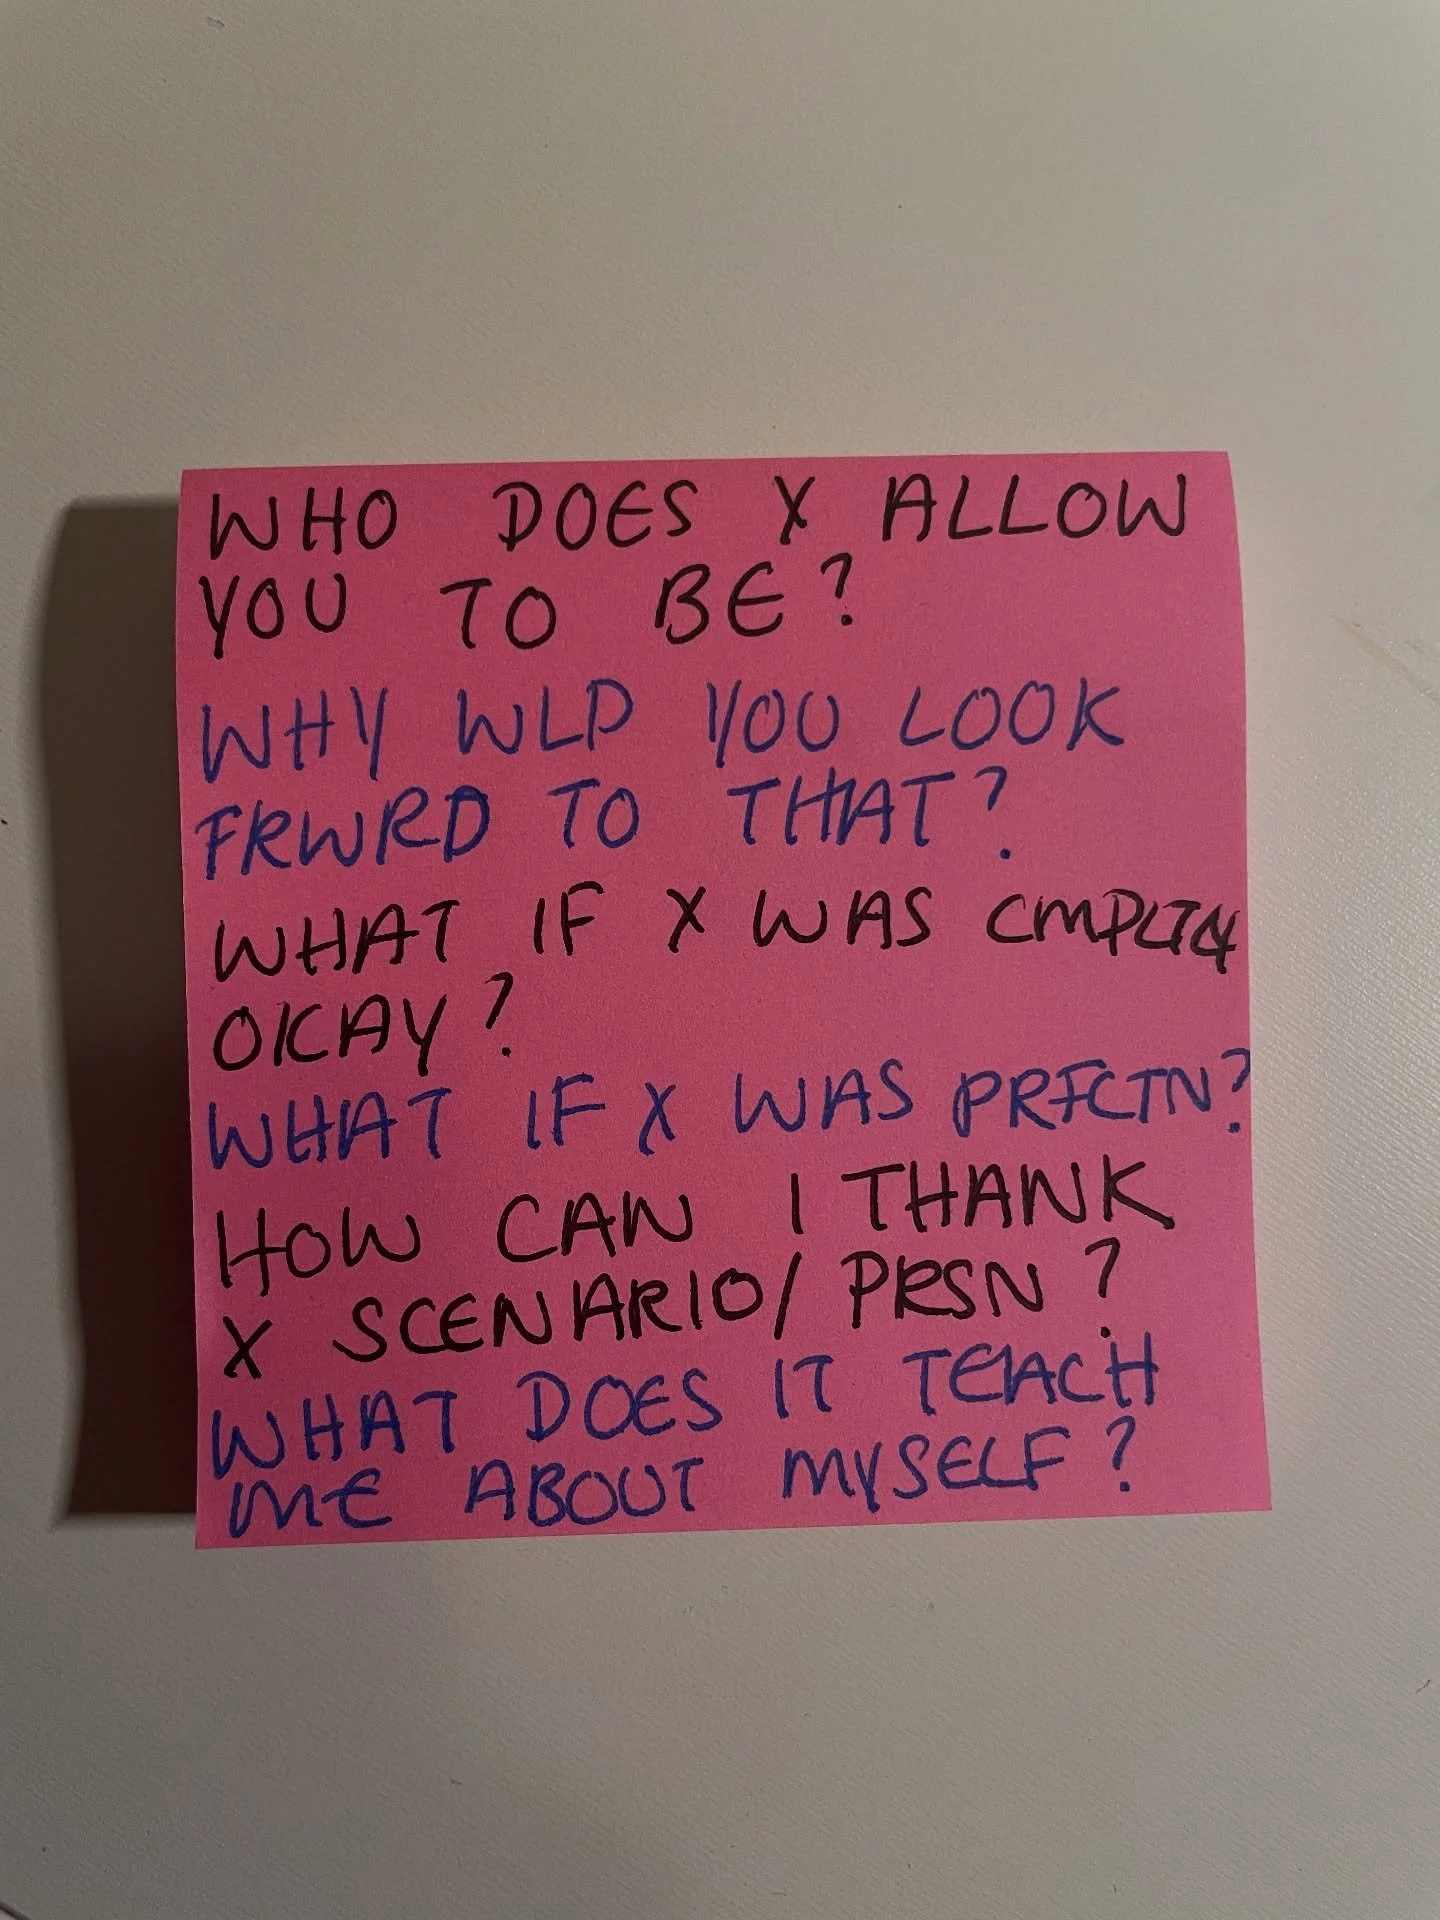 WHO DOES X ALLOW
YOU TO BE?
WHY WLD YOU LOOK
FRWRD TO THAT?
WHAT IF X WAS CMPLTLY
OKAY?
WHAT IF X WAS PRFCTN?
HOW CAN I THANK
X SCENARIO/ PRSN?
WHAT DOES IT TEACH
ME ABOUT MYSELF?